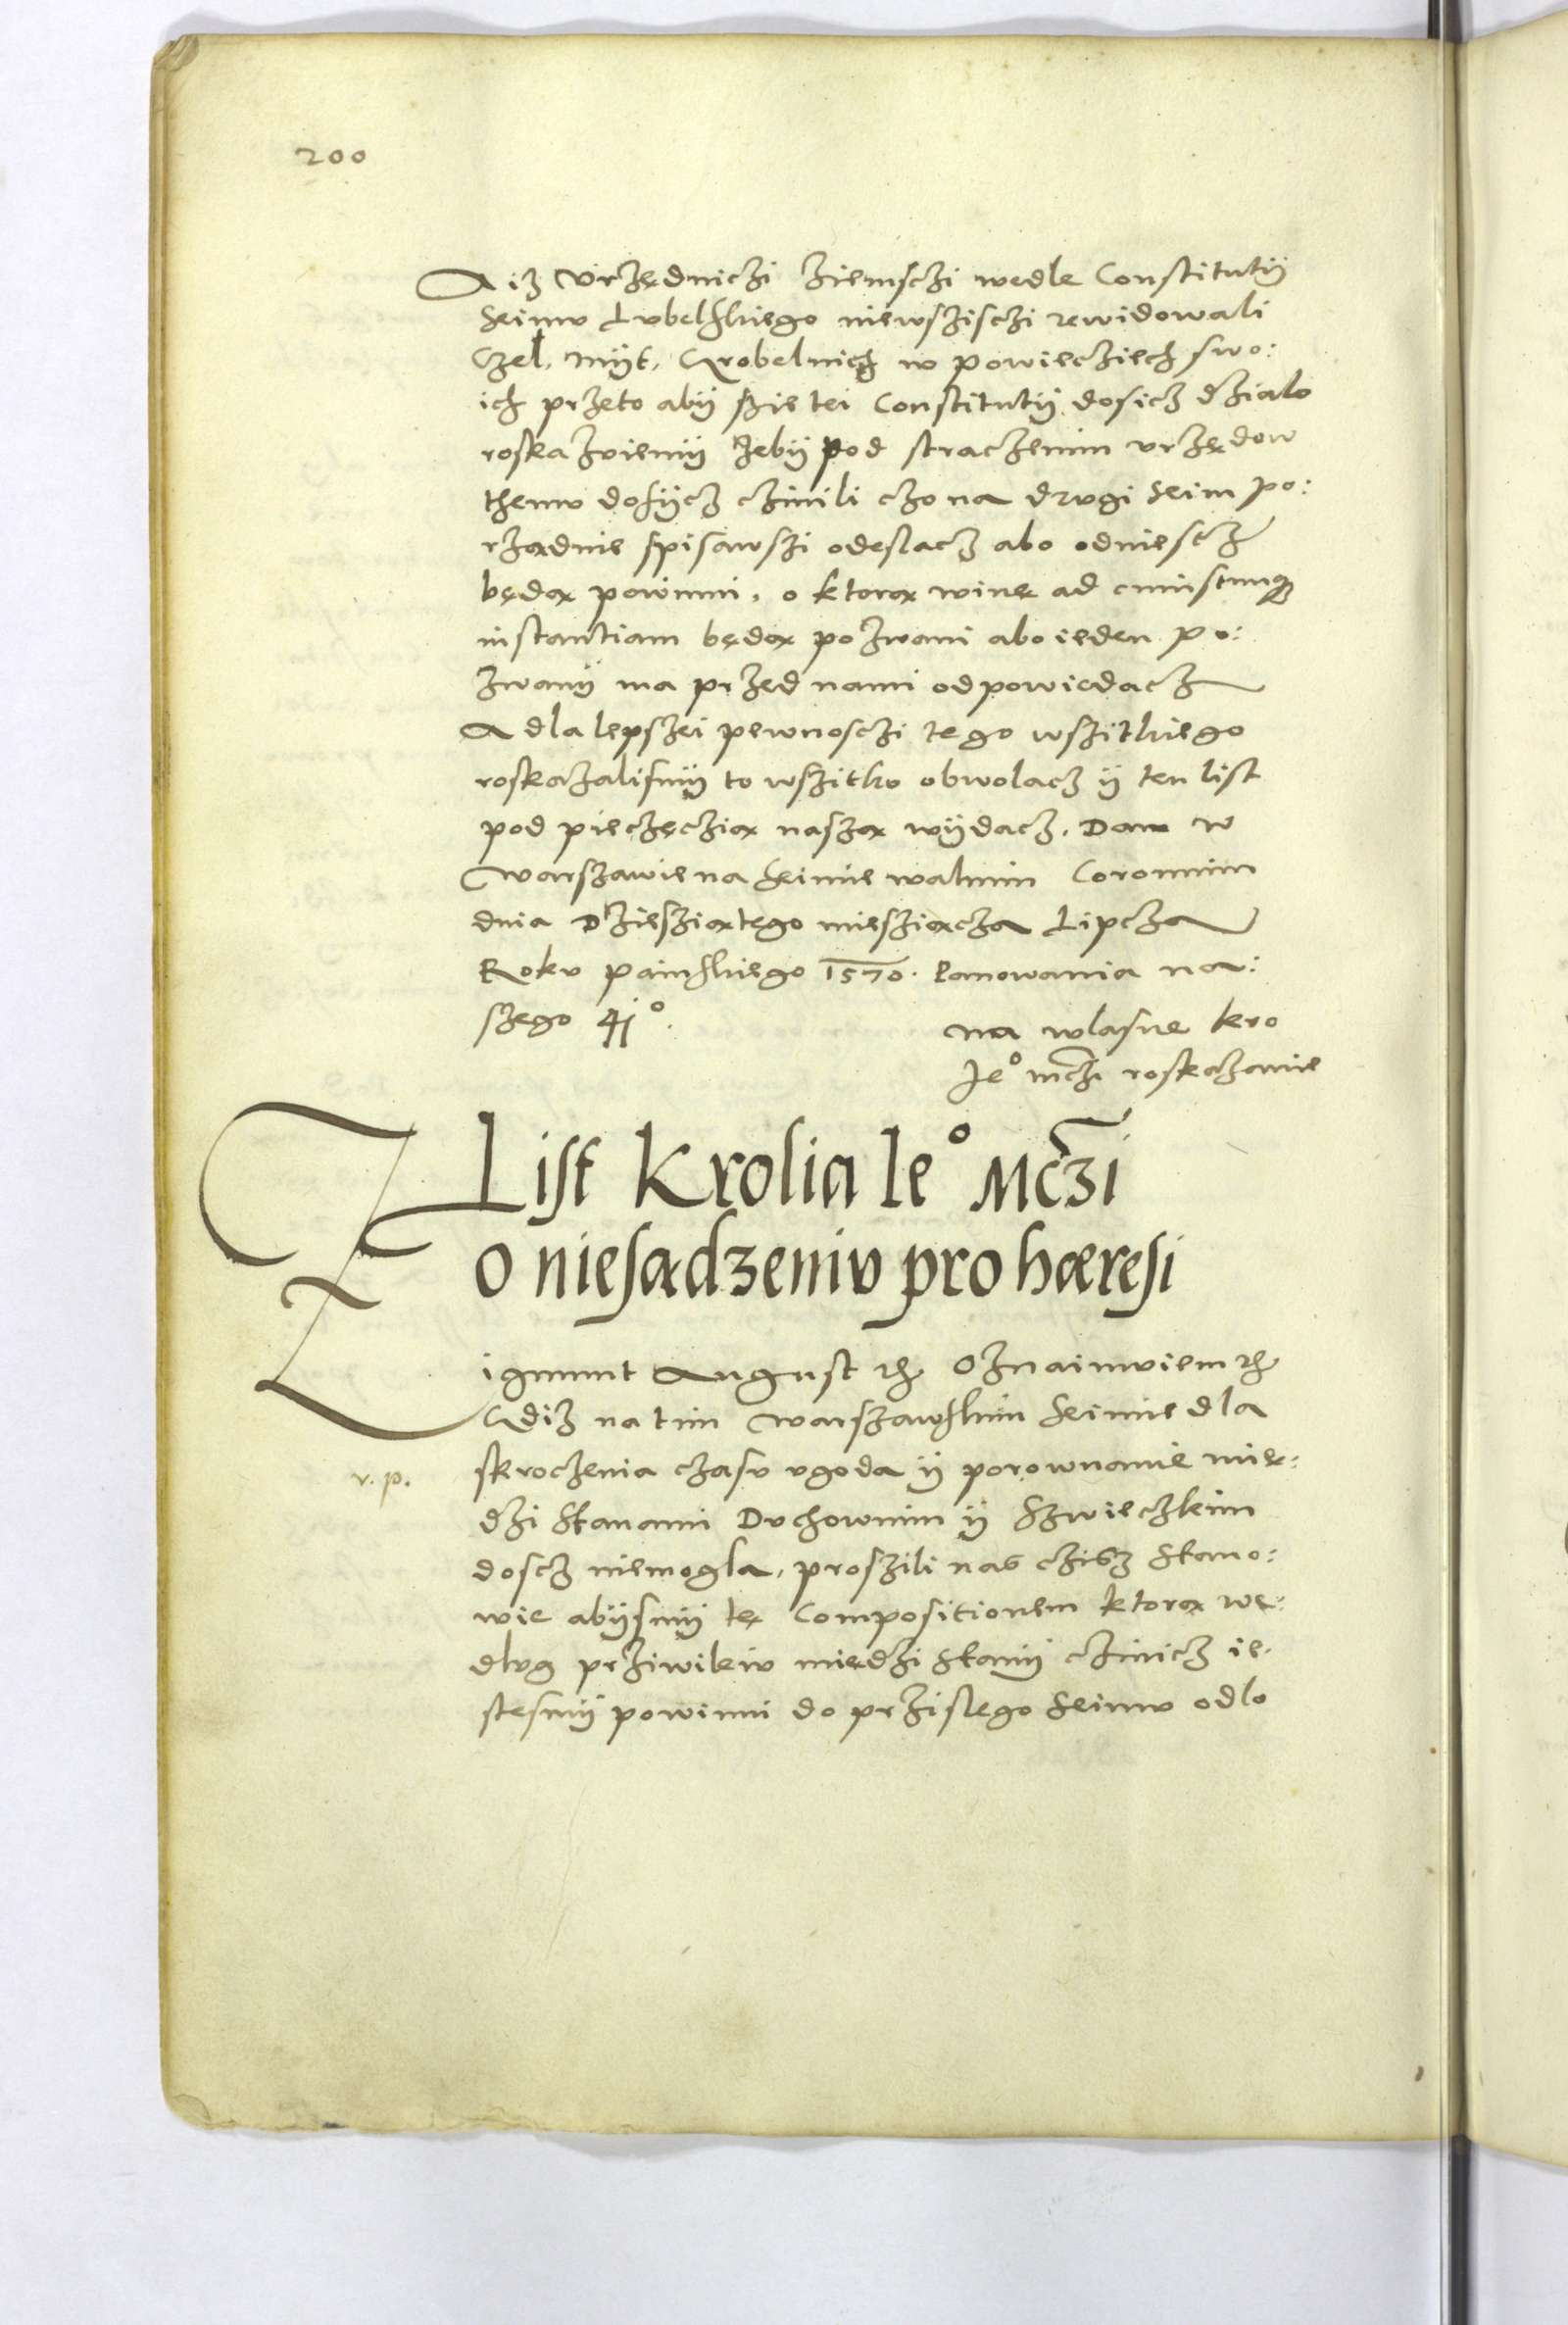 200
A iz Vrzędniczi ziemsczi wedle Constitutÿ
Seimu Lubelskiego niewszisczi rewidowali
Czel, mÿt, Grobelnich w powieciech swo:
ich przeto abÿ szie tei Constitutÿ dosicz działo
roskazuiemÿ żebÿ pod straczenim vrzędow
themu dosÿcz czinili czo na drugi seim po:
rządnie spisawszi odeslacz abo odniescz
będą powinni, o którą winę ad cuiuscunq3
instantiam będą pozwani abo ieden po:
zwanÿ ma przed nami odpowiedacz
A dla lepszei pewnosczi tego wszitkiego
roskazalismÿ to wszitko obwolacz ÿ ten list
pod pieczęczią naszą wÿdacz. Dan w
Warszawie na seimie walnim Coronnim
dnia Dziesziątego miesziącza Lipcza
Roku painskiego 1570. Panowania na:
szego 41º.
na wlasne kro
Jeº mczi roskazanie
List Krolia Ieº Mczi
o niesądzeniu pro hæresi
Zigmunt August rz Oznaimuiem rz
Gdiz na tim Warszawskim seimie dla
v. p. skroczenia czasu ugoda ÿ porownanie mię:
dzi stanami Duchownim ÿ Szwieczkim
doscz niemogla, proszili nas czisz stano:
wie abÿsmÿ tę Compositionem którą we:
dlug prziwileiu międzi stanÿ czinicz ie:
stesmÿ powinni do przislego seimu odlo